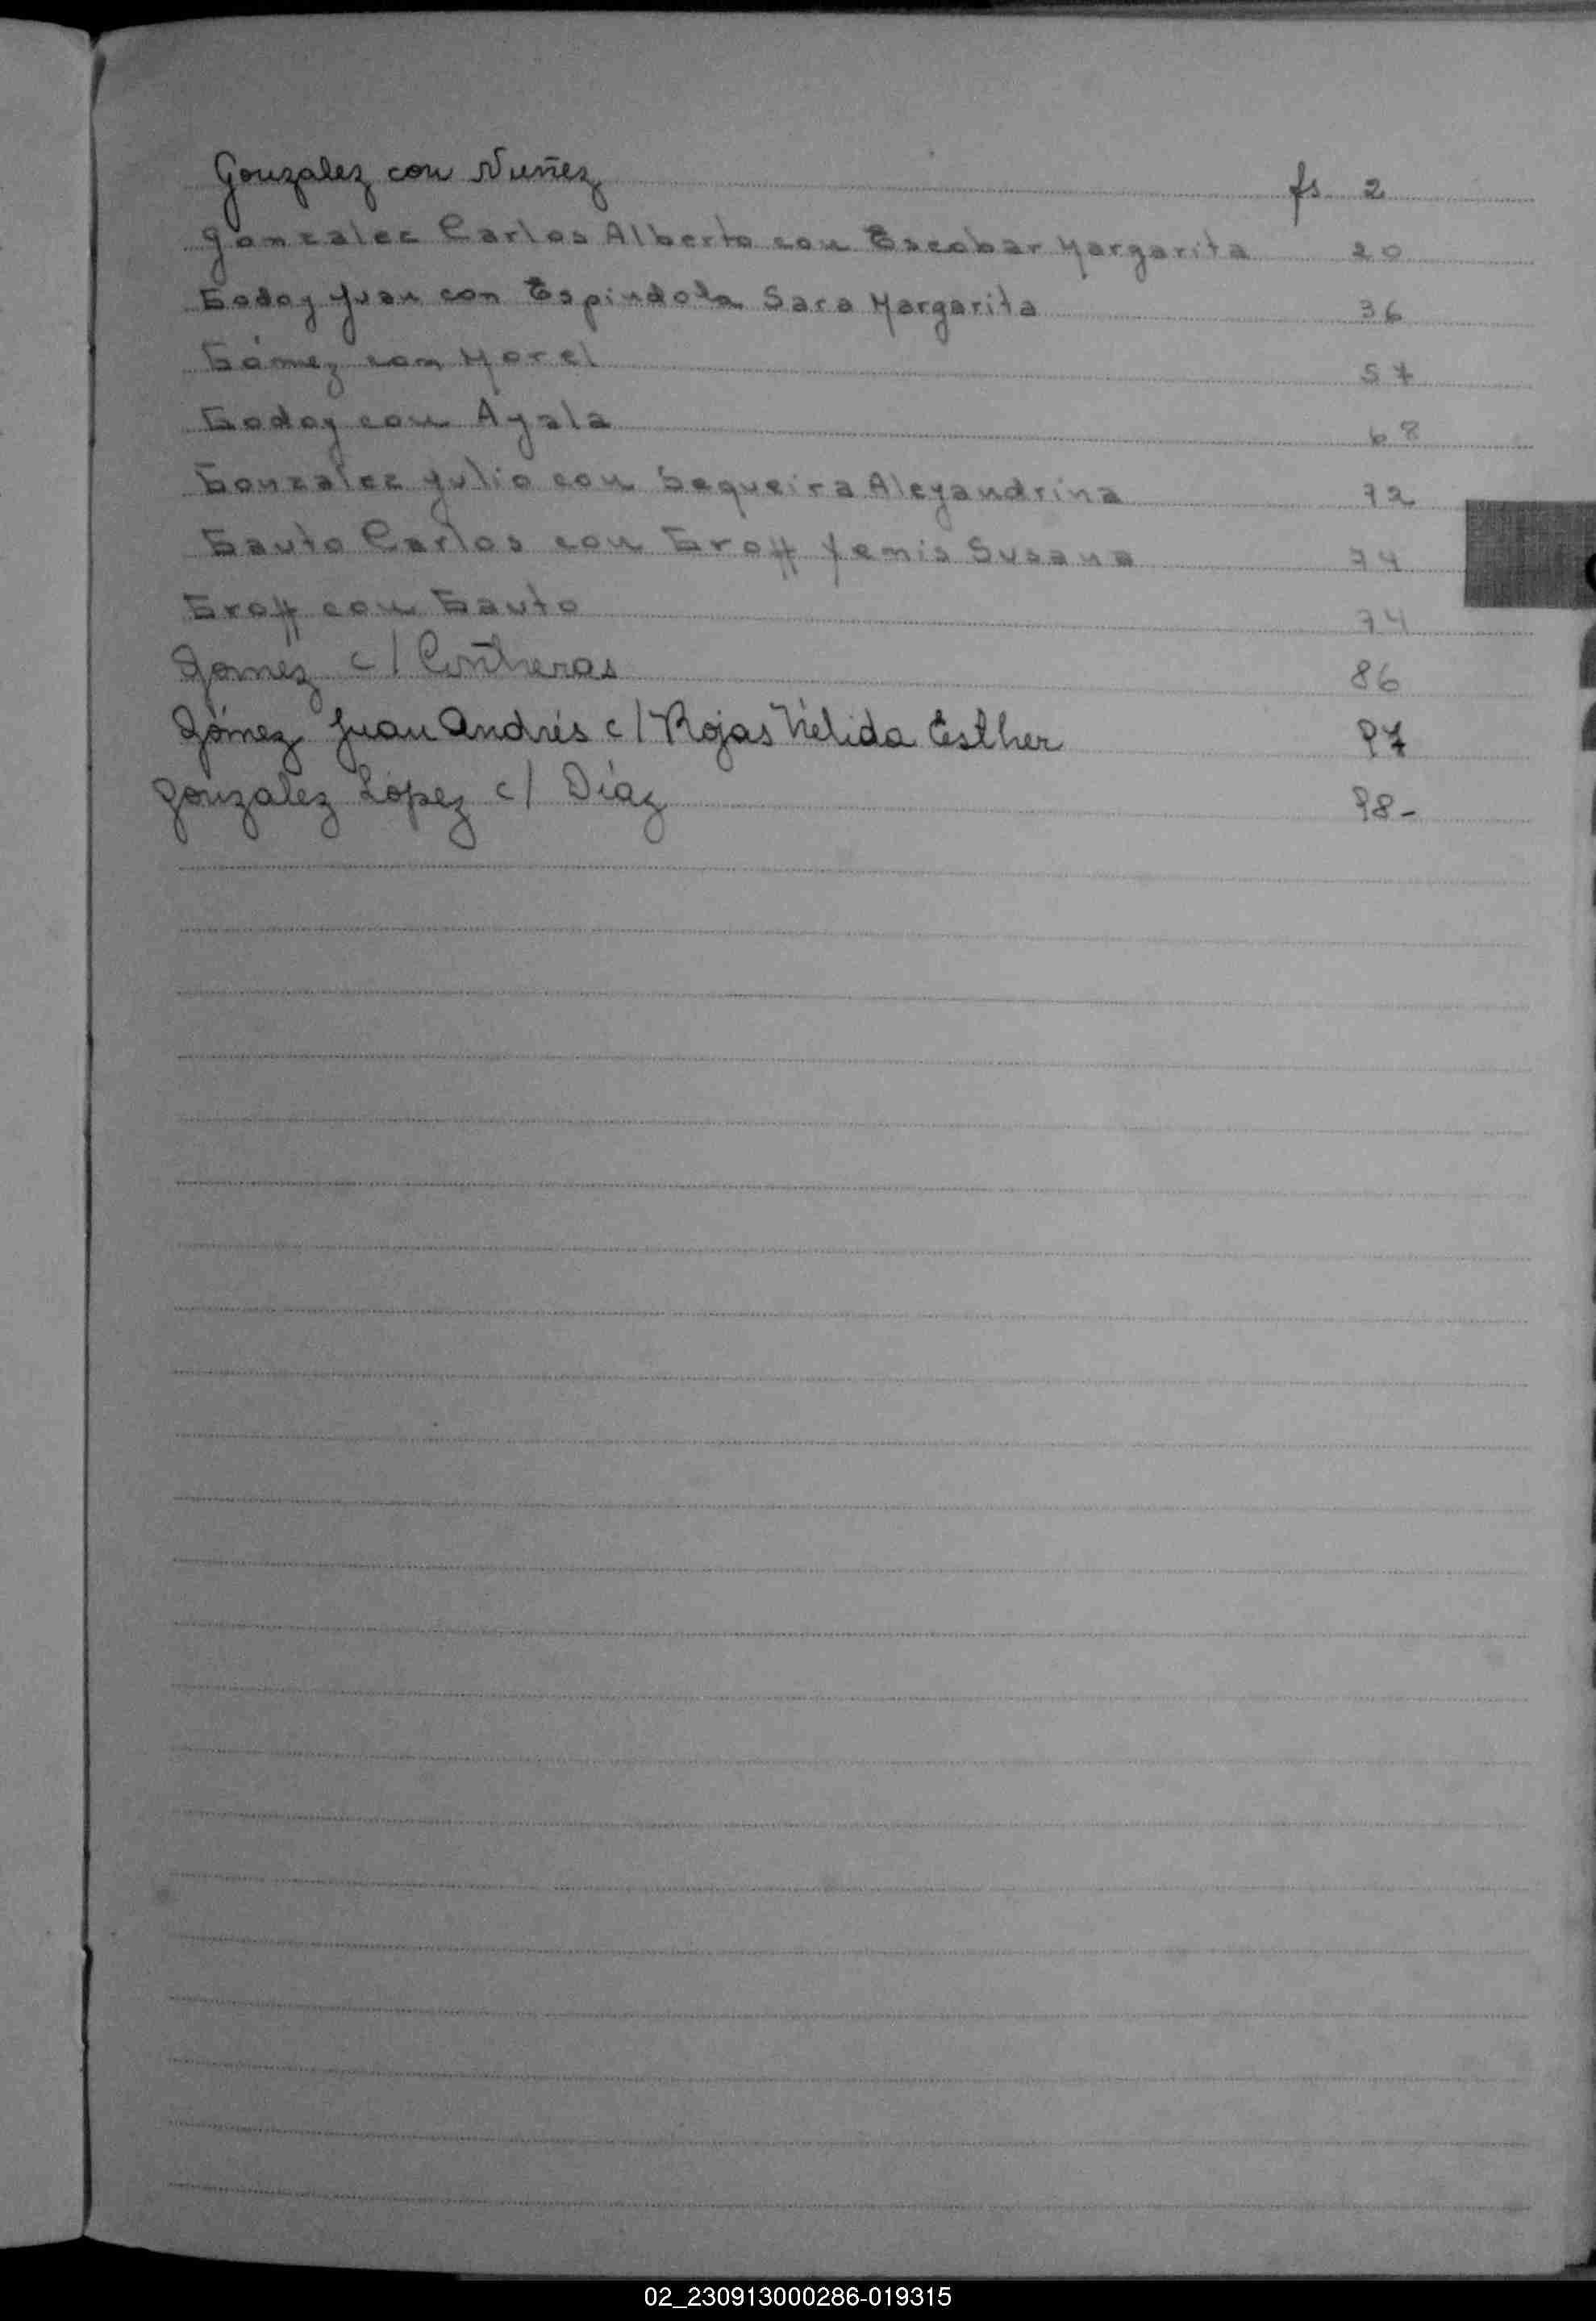 Gonzalez con Nuñez fs 2
Gonzalez Carlos Alberto con Escobar Margarita 20
Godoy Juan con Espindola Sara Margarita 36
Gómez con Morel 57
Godoy con Ayala 68
Gonzalez Julio con Sequeira Alejandrina 72
Gauto Carlos con Groff Yemis Susana 74
Groff con Gauto 74
Gomez c/ Contreras 86
Gómez Juan Andrés c/ Rojas Nélida Esther 97
Gonzalez López c/ Díaz 98-
02_230913000286-019315